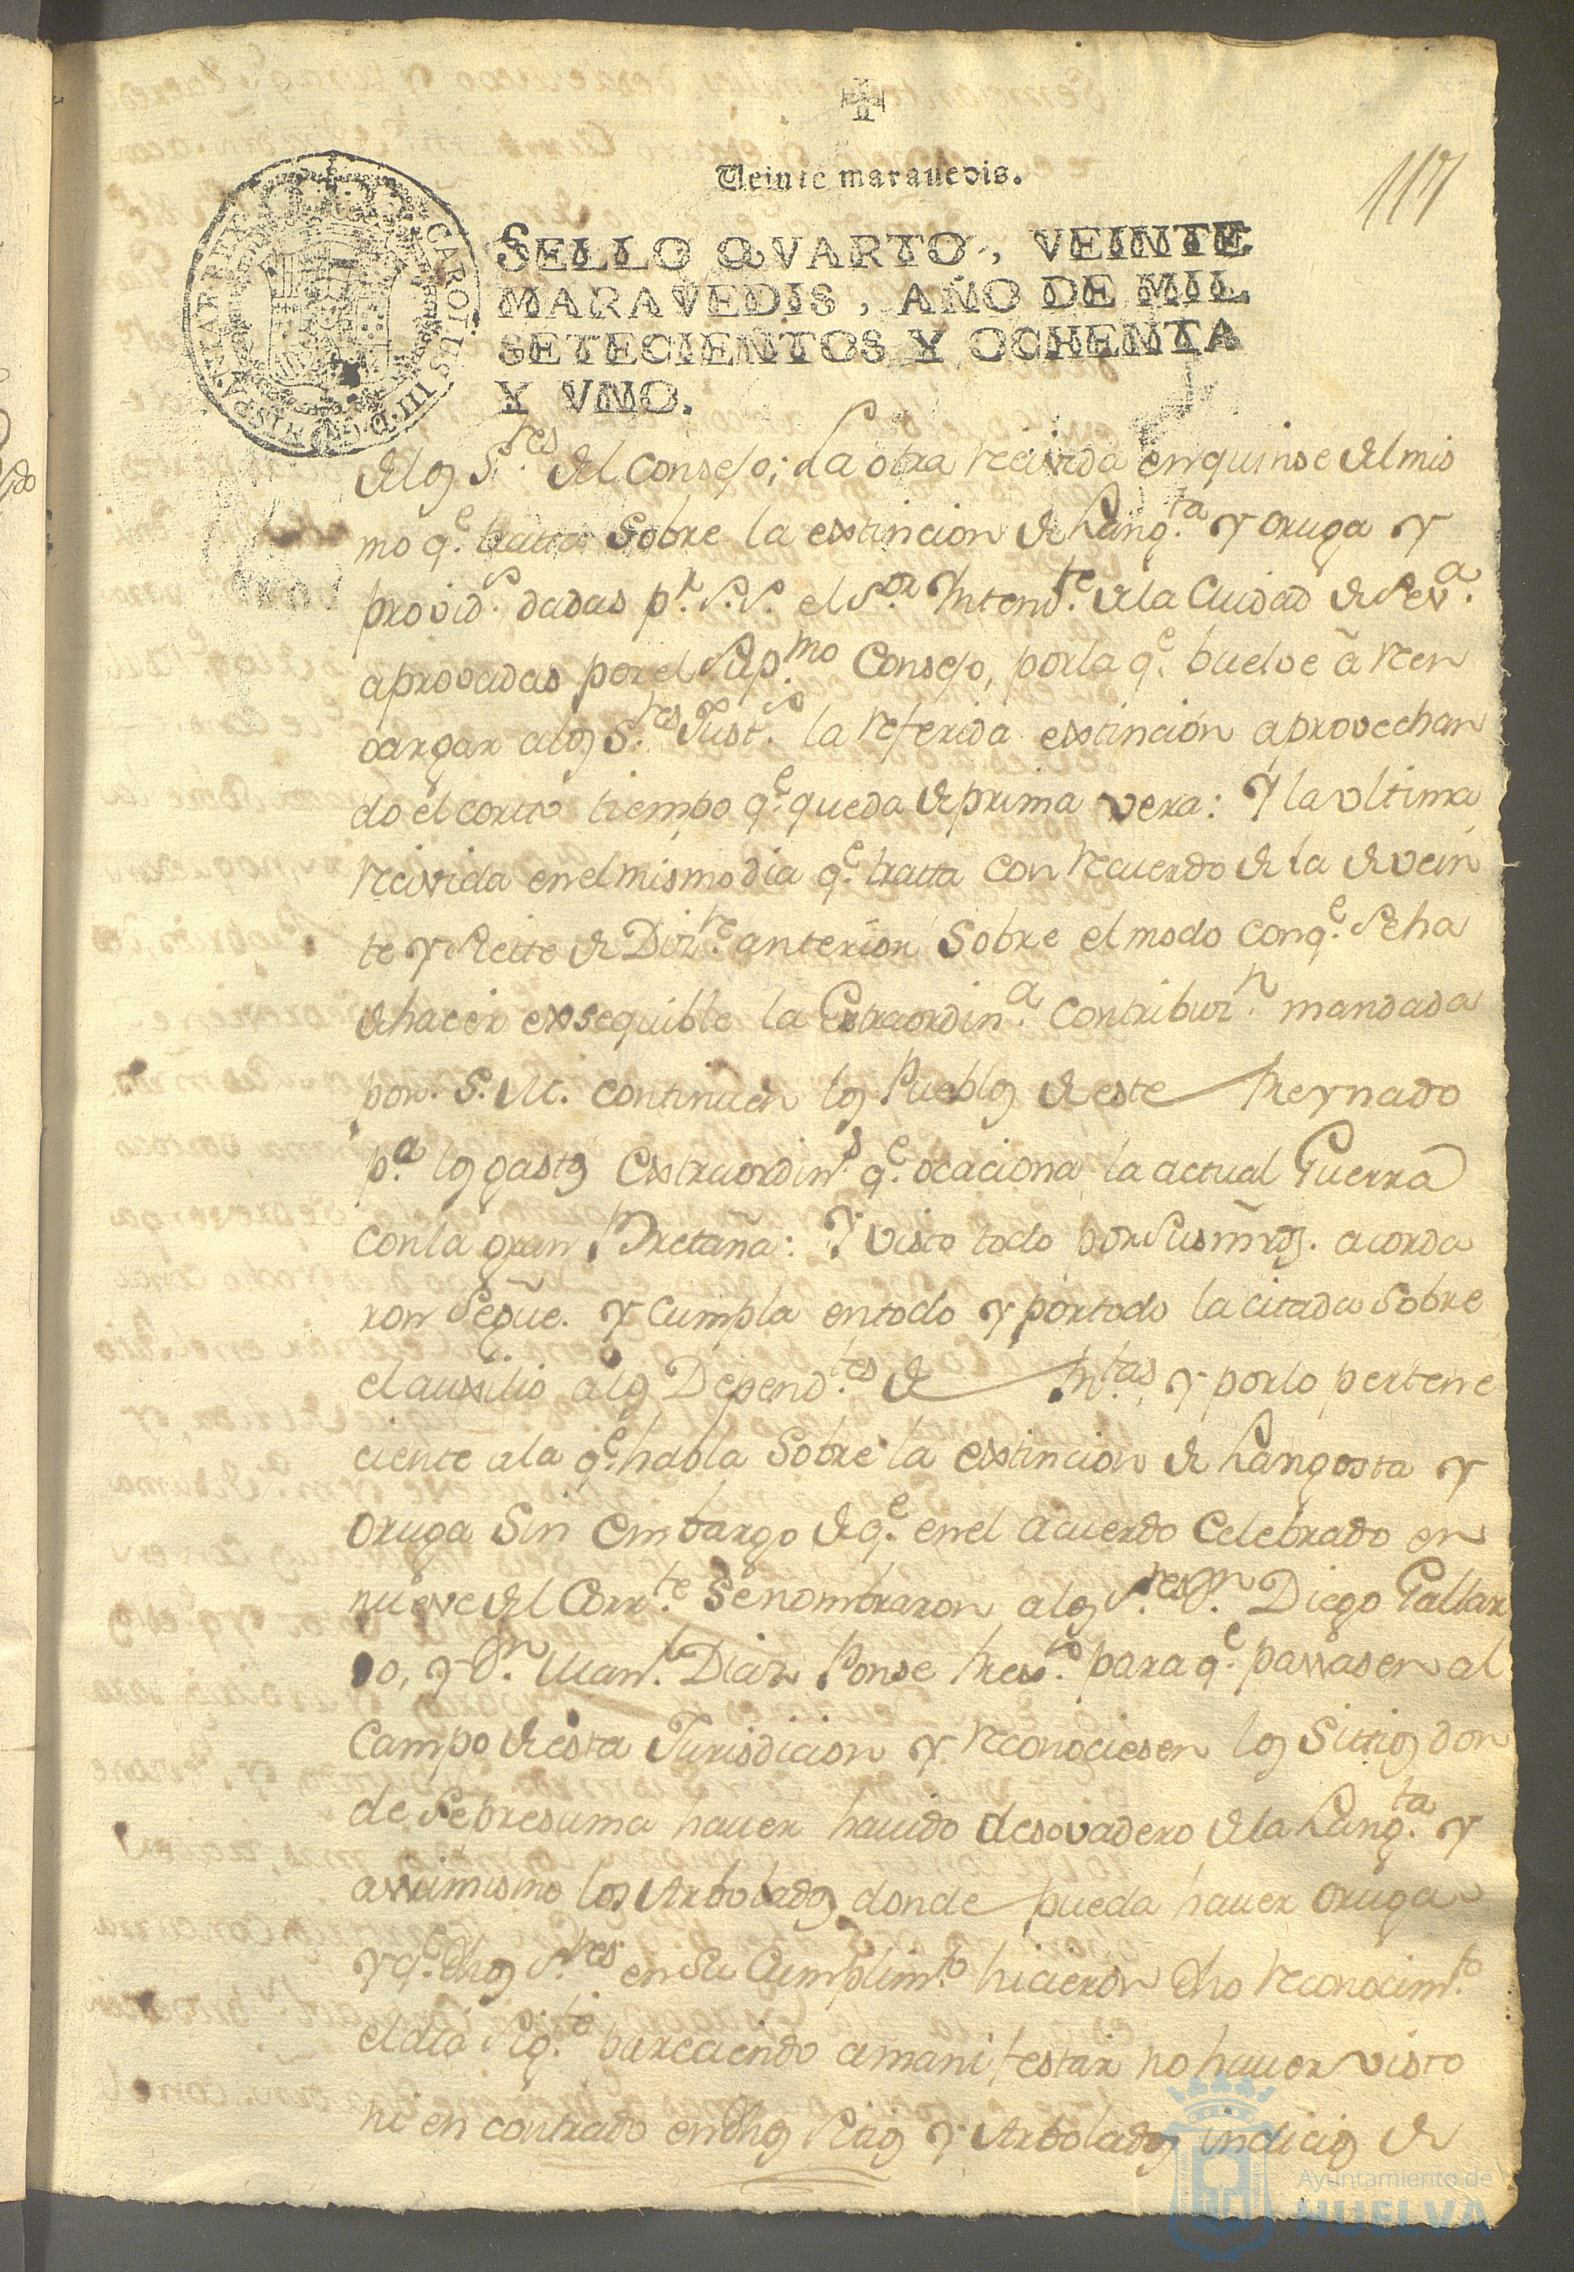 Veinte maravedis.
117
SELLO QVARTO, VEINTE
MARAVEDIS, AÑO DE MIL
SETECIENTOS Y OCHENTA
Y VNO.
CAROLUS III D G HISPANIAR REX
de los S.res del Consejo; La otra recivida en quinse del mis
mo q.e tratta Sobre la extincion de Lang.ta y oruga y
provid.s dadas p.r S.S. el S.or Yntend.te de la Ciudad de Sev.a
aprovadas por el Sup.mo Consejo, por la q.e buelve â ren
cargar a los S.res Just.s la referida extincion aprovechan
do el corto tiempo q.e queda de prima vera: Y la vltima
recivida en el mismo dia q.e tratta con recuerdo de la de vein
te y Siette de Diz.re anterior Sobre el modo con q.e Se ha
de hacer exsequible la Extraordin.a Contribuz.n mandada
por S.M. continuen los Pueblos de este Reynado
p.a los gastos Extraordin.s q.e ocaciona la actual Guerra
con la gran Bretaña: Y visto todo por Sus mrds. acorda
ron Se gũe. y Cumpla en todo y por todo la citada Sobre
el auxilio a los Depend.tes de Rtas, y por lo pertene
ciente a la q.e habla Sobre la extincion de Langosta y
Oruga Sin Embargo de q.e en el acuerdo Celebrado en
nueve del Corr.te Se nombraron a los S.res D.n Diego Gallar
do, y D.n Man.l Diaz Ponse Rex.s para q.e passasen al
Campo de esta Jurisdicion y reconociesen los Sittios don
de Se presuma haver havido desovadero de la Lang.ta y
assimismo los Arbolados donde pueda haver oruga
y q.e dhos S.res en Su Cumplim.to hicieron dho reconocim.to
el dia Sig.te pareciendo a manifestar no haver visto
ni en contrado en dhos Sitios y Arbolados indicios de
Ayuntamiento de
HUELVA